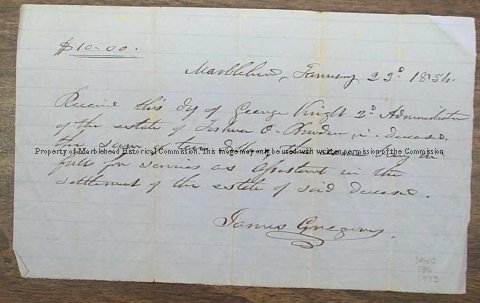 $10.00.
Marblehead, January 23d 1854.
Receive this day of George Knight 2d Administrator
of the estate of Joshua O. Bowden in. deceased
the sum of ten dollars
Property of Marblehead Historical Commission. This image may only be used with written permission of the Commission
full for services as in the
settlement of the estate of said deceased.
James Gregory.
1993